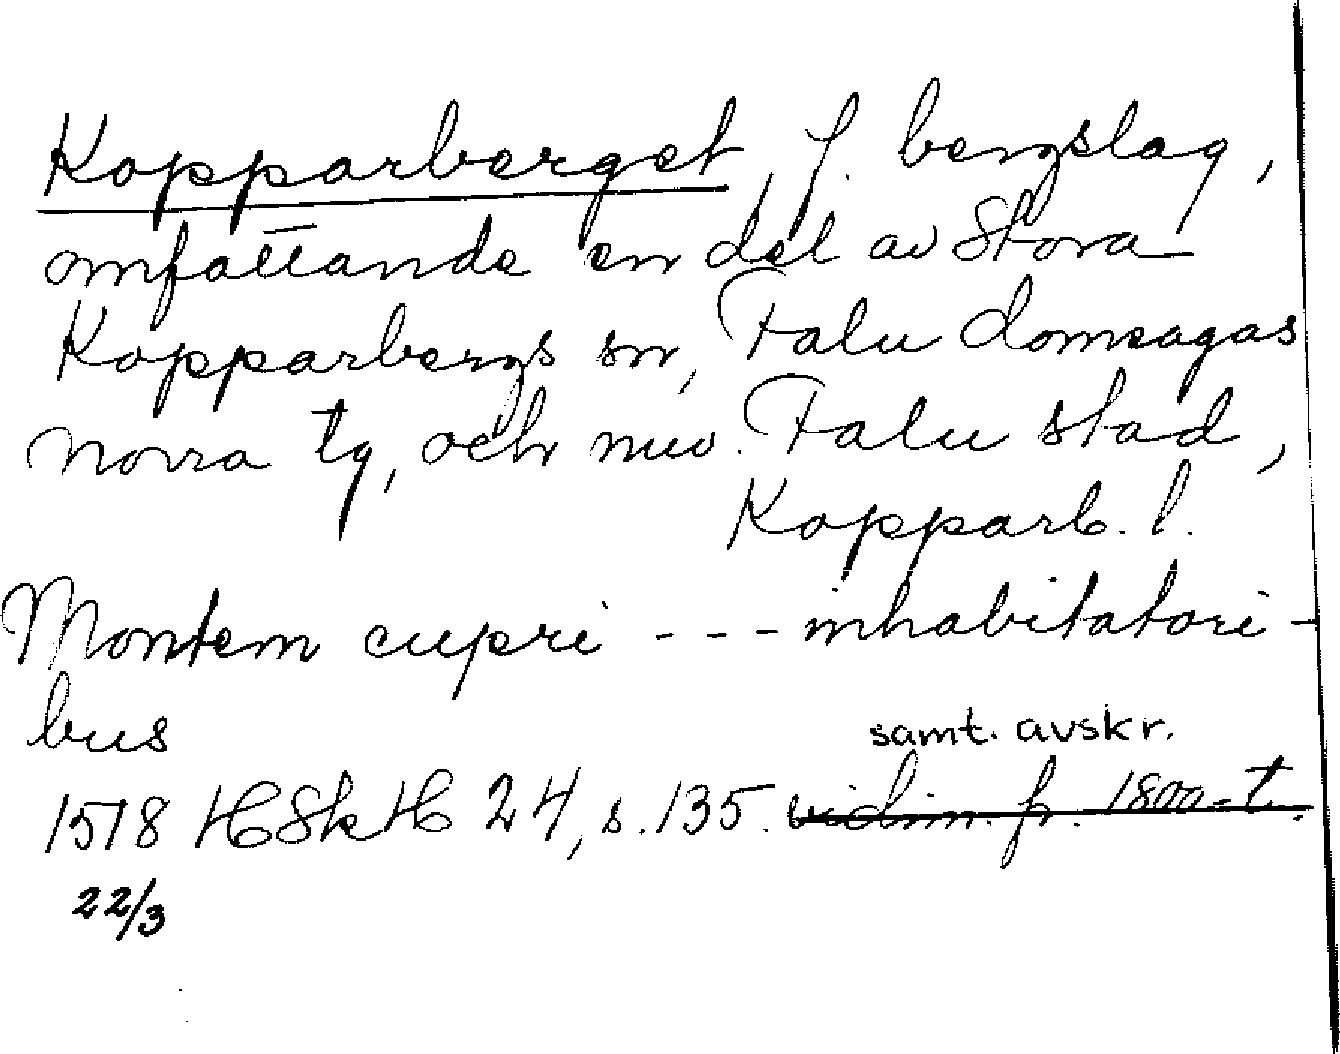 Kopparberget, f. bergslag,
omfattande en del av Stora
Kopparbergs sn, Falu domsagas
norra tg, och nuv. Falu stad,
Kopparb. l.
Montem cupri --- inhabitatori-
bus
samt. avskr.
1518 HSkH 24, s. 135. vidim. fr. 1800-t.
22/3